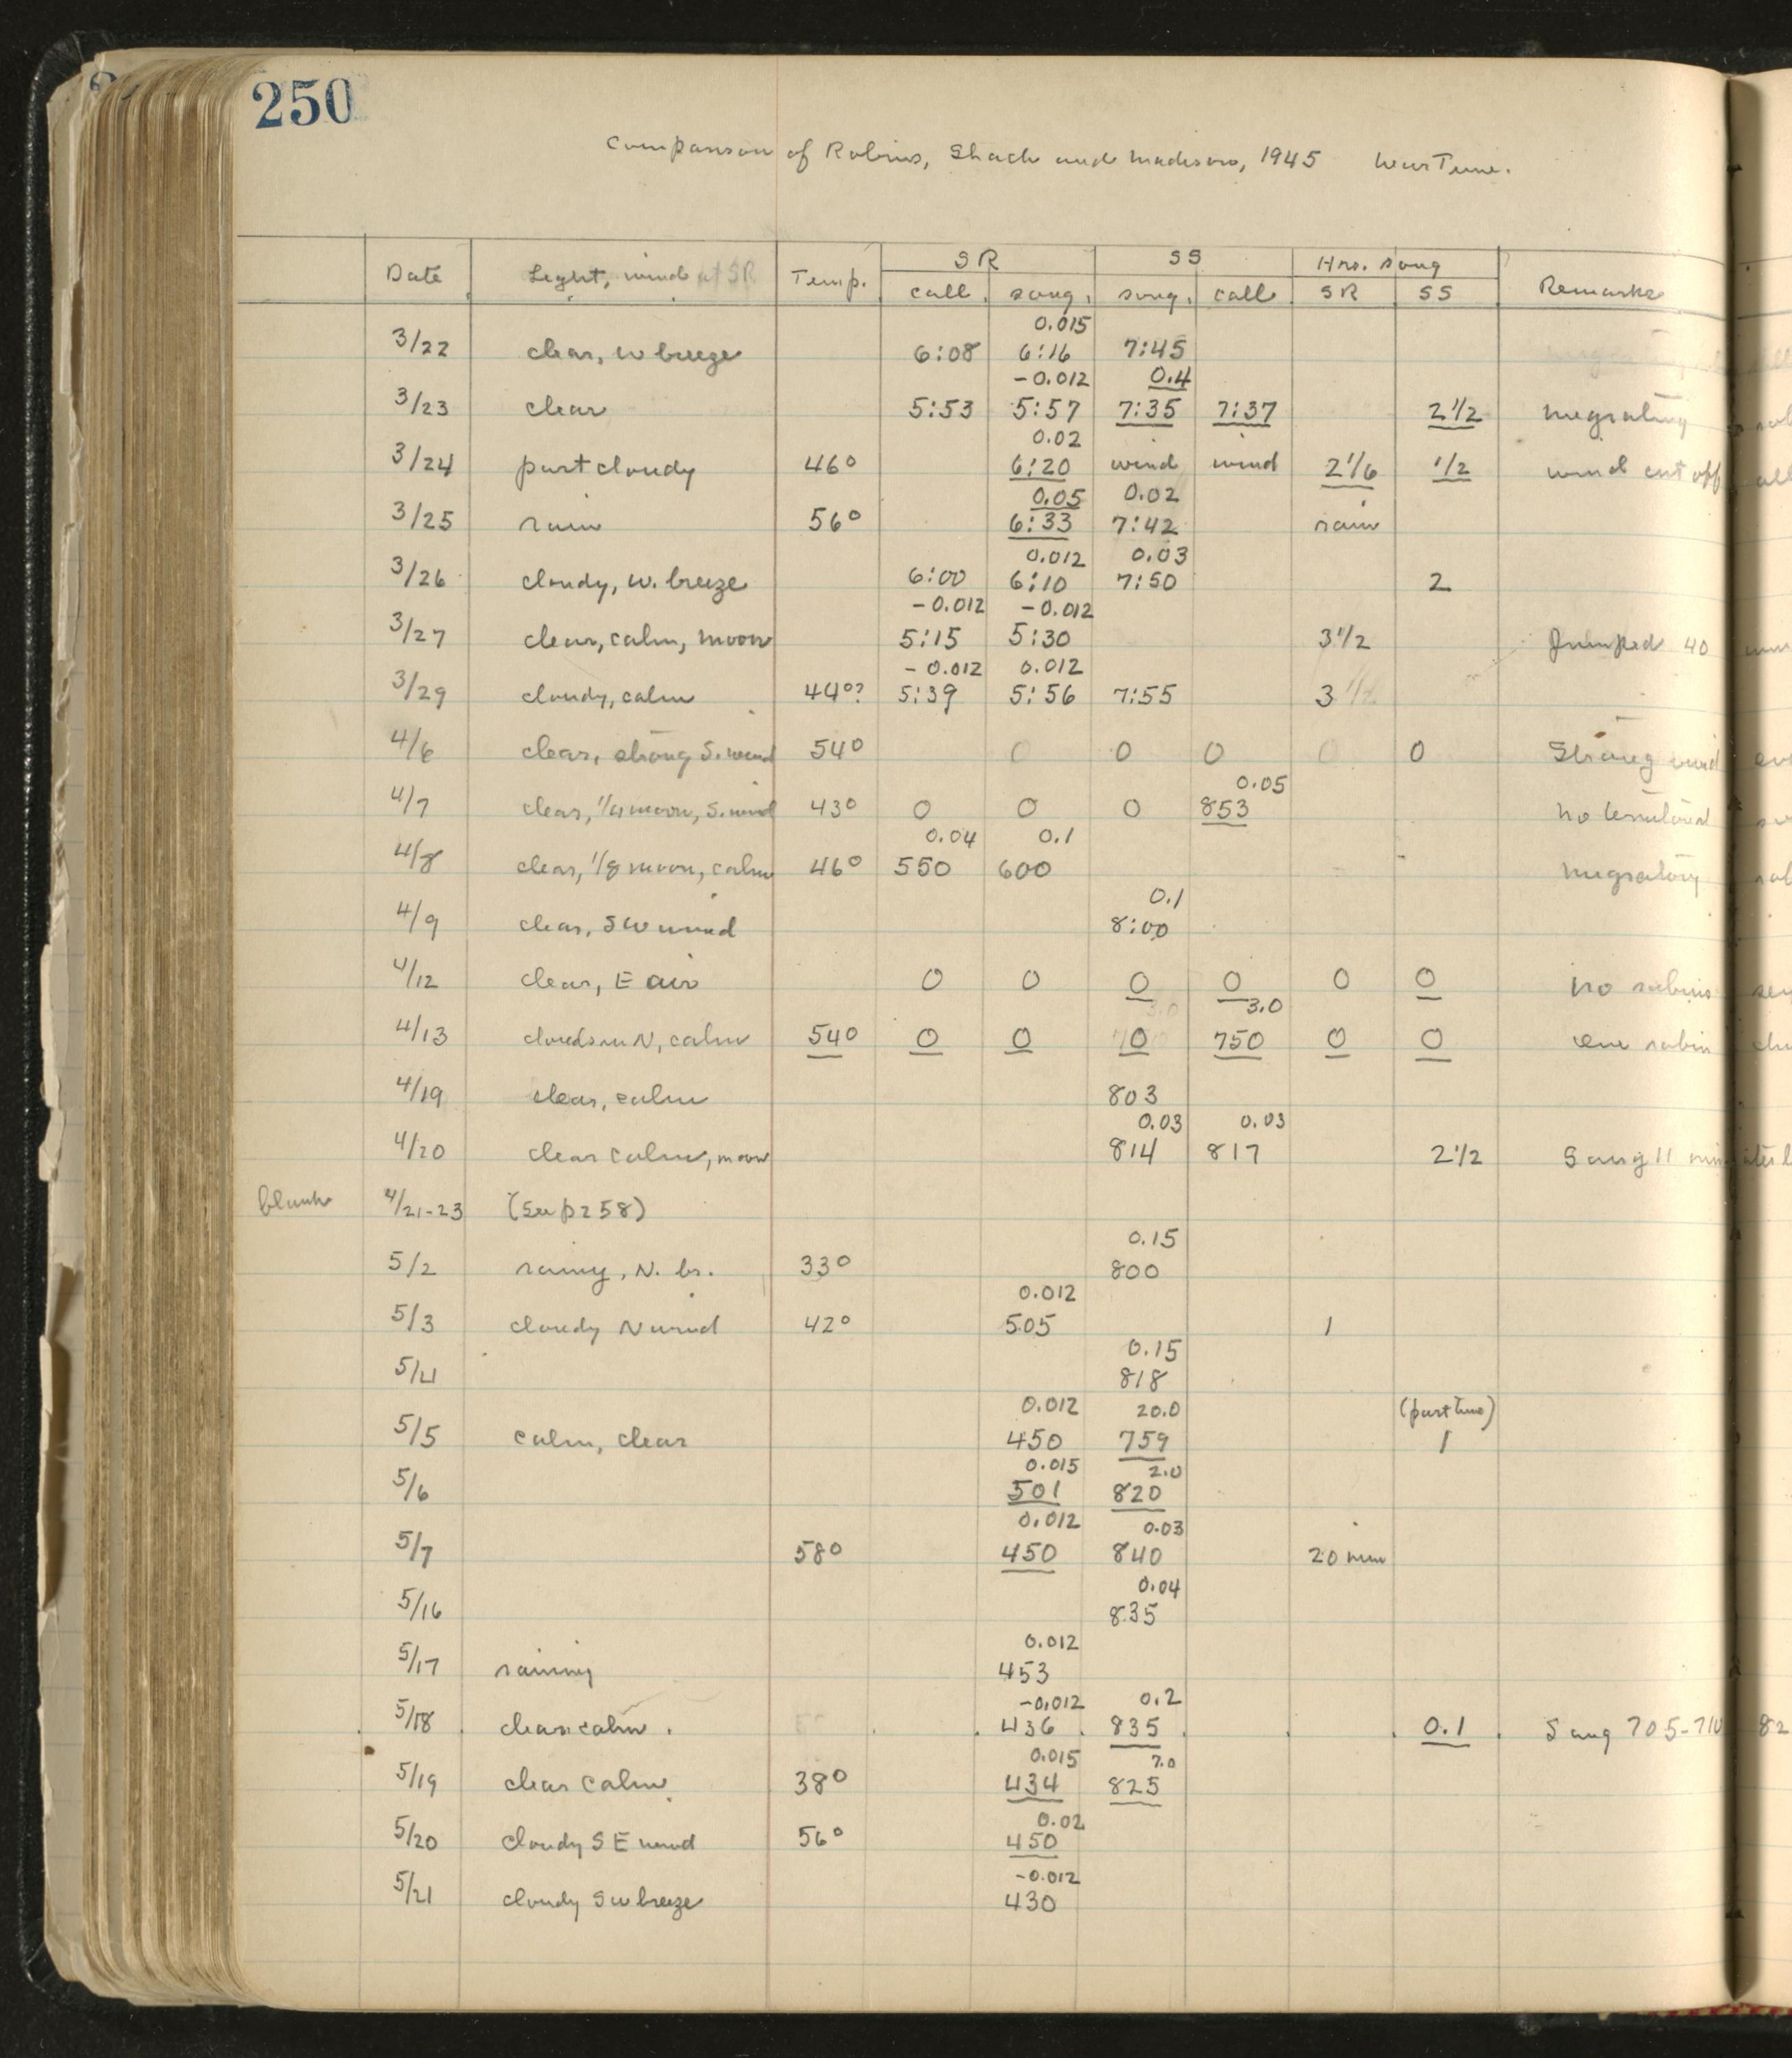 250
Comparison of Robins, Shack and Madison, 1945 War Time.
SR SS Hrs. song
Date Light, wind at SR Temp. call song song call SR SS Remarks
0.015
3/22 clear, W breeze 6:08 6:16 7:45
-0.012 0.4
3/23 clear 5:53 5:57 7:35 7:37 2 1/2 migrating
0.02
3/24 part cloudy 46° 6:20 wind wind 2 1/6 1/2 wind cut off
0.05 0.02
3/25 rain 56° 6:33 7:42 rain
0.012 0.03
3/26 cloudy, W. breeze 6:00 6:10 7:50 2
-0.012 -0.012
3/27 clear, calm, moon 5:15 5:30 3 1/2 Jumped 40
-0.012 0.012
3/29 cloudy, calm 44°? 5:39 5:56 7:55 3 1/2
4/6 clear, strong S. wind 54° 0 0 0 0 0 Strong wind
0.05
4/7 clear, 1/4 moon, S. wind 43° 0 0 0 853 no territorial
0.04 0.1
4/8 clear, 1/8 moon, calm 46° 550 600 migratory
0.1
4/9 clear, SW wind 8:00
4/12 clear, E air 0 0 0 0 0 0 no robins
3.0 3.0
4/13 clouds in N, calm 54° 0 0 0 750 0 0 one robin
4/19 clear, calm 803
0.03 0.03
4/20 clear calm, moon 814 817 2 1/2 Sang 11 min
blank 4/21-23 (See p 258)
0.15
5/2 rainy, N. br. 33° 800
0.012
5/3 cloudy N wind 42° 505 1
0.15
5/4 818
0.012 20.0 (part time)
5/5 calm, clear 450 759 1
0.015 2.0
5/6 501 820
0.012 0.03
5/7 58° 450 840 20 min
0.04
5/16 835
0.012
5/17 raining 453
-0.012 0.2
5/18 clear calm 436 835 0.1 Sang 705-710 82
0.015 7.0
5/19 clear calm 38° 434 825
0.02
5/20 cloudy SE wind 56° 450
-0.012
5/21 cloudy SW breeze 430